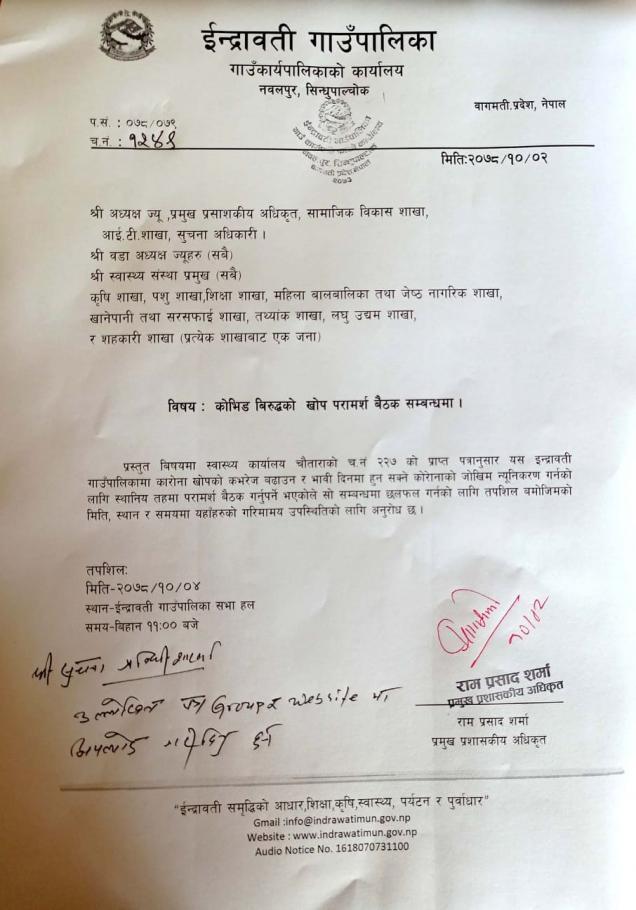 ईन्द्रावती गाउँपालिका
गाउँकार्यपालिकाको कार्यालय
नवलपुर, सिन्धुपाल्चोक
वागमती.प्रदेश, नेपाल
प.सं. : ०७८/०७९
च.नं. : १२४९
मिति:२०७८/१०/०२
श्री अध्यक्ष ज्यू ,प्रमुख प्रसाशकीय अधिकृत, सामाजिक विकास शाखा,
आई.टी.शाखा, सुचना अधिकारी ।
श्री वडा अध्यक्ष ज्यूहरु (सबै)
श्री स्वास्थ्य संस्था प्रमुख (सबै)
कृषि शाखा, पशु शाखा,शिक्षा शाखा, महिला बालबालिका तथा जेष्ठ नागरिक शाखा,
खानेपानी तथा सरसफाई शाखा, तथ्यांक शाखा, लघु उद्यम शाखा,
र शहकारी शाखा (प्रत्येक शाखाबाट एक जना)
विषय : कोभिड बिरुद्धको खोप परामर्श बैठक सम्बन्धमा ।
प्रस्तुत बिषयमा स्वास्थ्य कार्यालय चौताराको च.नं २२७ को प्राप्त पत्रानुसार यस इन्द्रावती
गाउँपालिकामा कारोना खोपको कभरेज बढाउन र भावी दिनमा हुन सक्ने कोरोनाको जोखिम न्यूनिकरण गर्नको
लागि स्थानिय तहमा परामर्श बैठक गर्नुपर्ने भएकोले सो सम्बन्धमा छलफल गर्नको लागि तपशिल बमोजिमको
मिति, स्थान र समयमा यहाँहरुको गरिमामय उपस्थितिको लागि अनुरोध छ ।
तपशिल:
मिति-२०७८/१०/०४
स्थान-ईन्द्रावती गाउँपालिका सभा हल
समय-बिहान ११:०० बजे
श्री सुचना
उल्लेखित पत्र Group र Website मा
अपलोड गरीदिनु हुन
१०/०२
राम प्रसाद शर्मा
प्रमुख प्रशासकीय अधिकृत
राम प्रसाद शर्मा
प्रमुख प्रशासकीय अधिकृत
“ईन्द्रावती समृद्धिको आधार,शिक्षा,कृषि,स्वास्थ्य, पर्यटन र पुर्वाधार”
Gmail :info@indrawatimun.gov.np
Website : www.indrawatimun.gov.np
Audio Notice No. 1618070731100